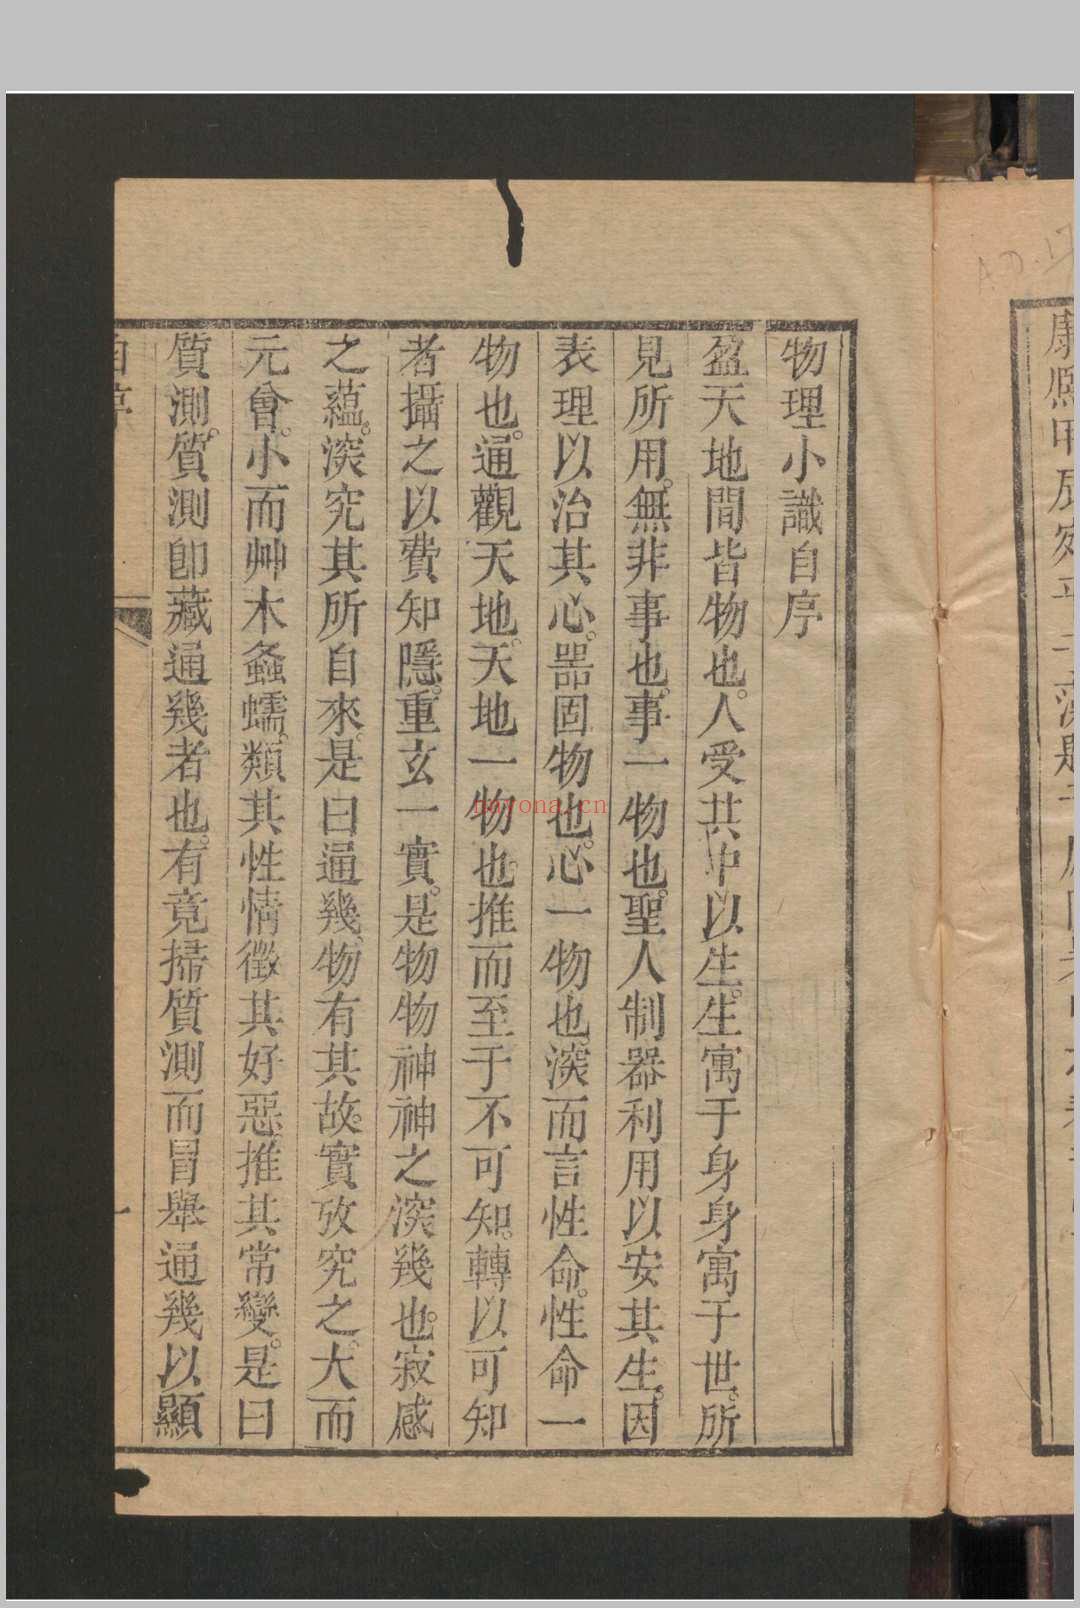 物理小識自序
盈天地間皆物也。人受其中以生。生寓于身身寓于世。所
見所用。無非事也。事一物也。聖人制器利用以安其生。因
表理以治其心。器固物也。心一物也。深而言性命。性命一
物也。通觀天地。天地一物也。推而至于不可知。轉以可知
者攝之以費知隱。重玄一實。是物物神神之深幾也。寂感
之蘊。深究其所自來。是曰通幾。物有其故。實攷究之。大而
元會。小而艸木螽蠕。類其性情徵其好惡。推其常變。是曰
質測。質測卽藏通幾者也。有竟掃質測而冒舉通幾以顯
自序
一